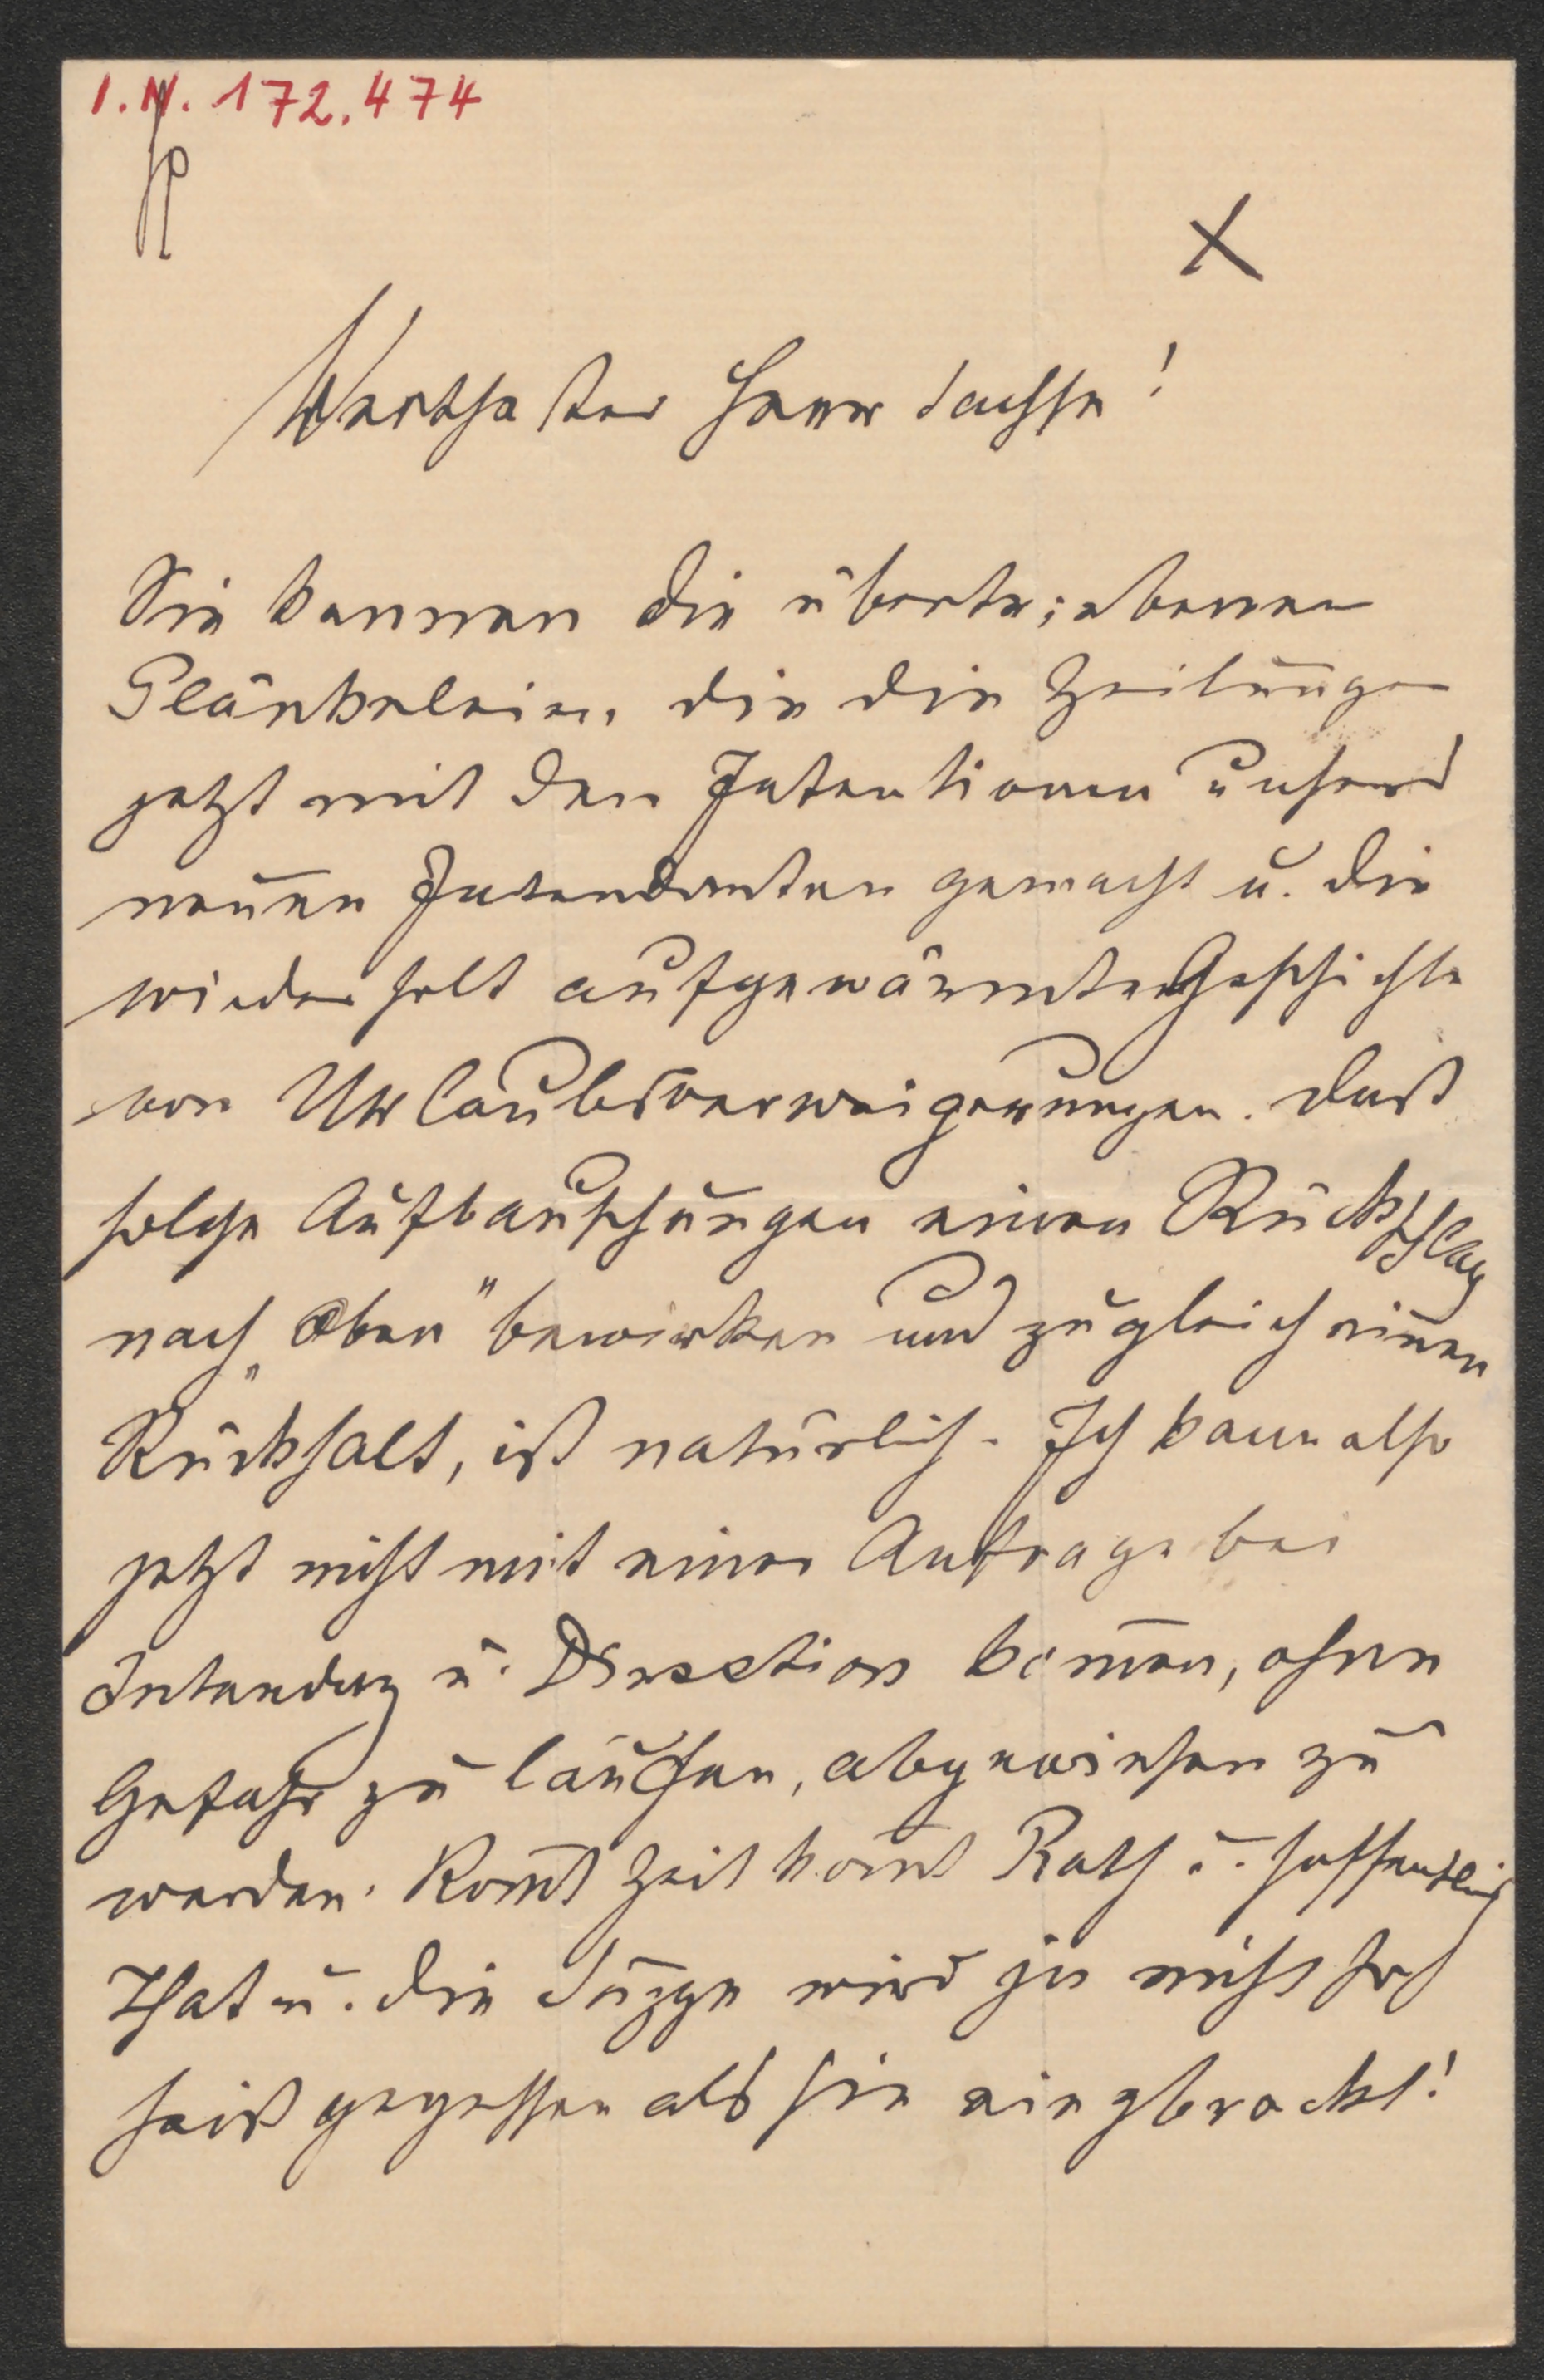 I.N. 172.474
Werthester Herr Sachse!
Sie kennen die übertriebenen
Plänkeleien, die die Zeitungen
jetzt mit den Intentionen unseres
neuen Intendanten gemacht u. die
wiederholt aufgewärmte Geschichte
von Urlaubsverweigerungen. Daß
solche Aufbauschungen einen Rückschlag
nach „Oben" bewirken und zugleich einen
Rückhalt, ist natürlich. Ich kann also
jetzt nicht mit einer Anfrage bei
Intendanz u. Direction kom̄en, ohne
Gefahr zu laufen, abgewiesen zu
werden. Kom̄t Zeit kom̄t Rath u. hoffentlich
That u. die Suppe wird ja nicht so
heiß gegessen als sie eingebrockt!